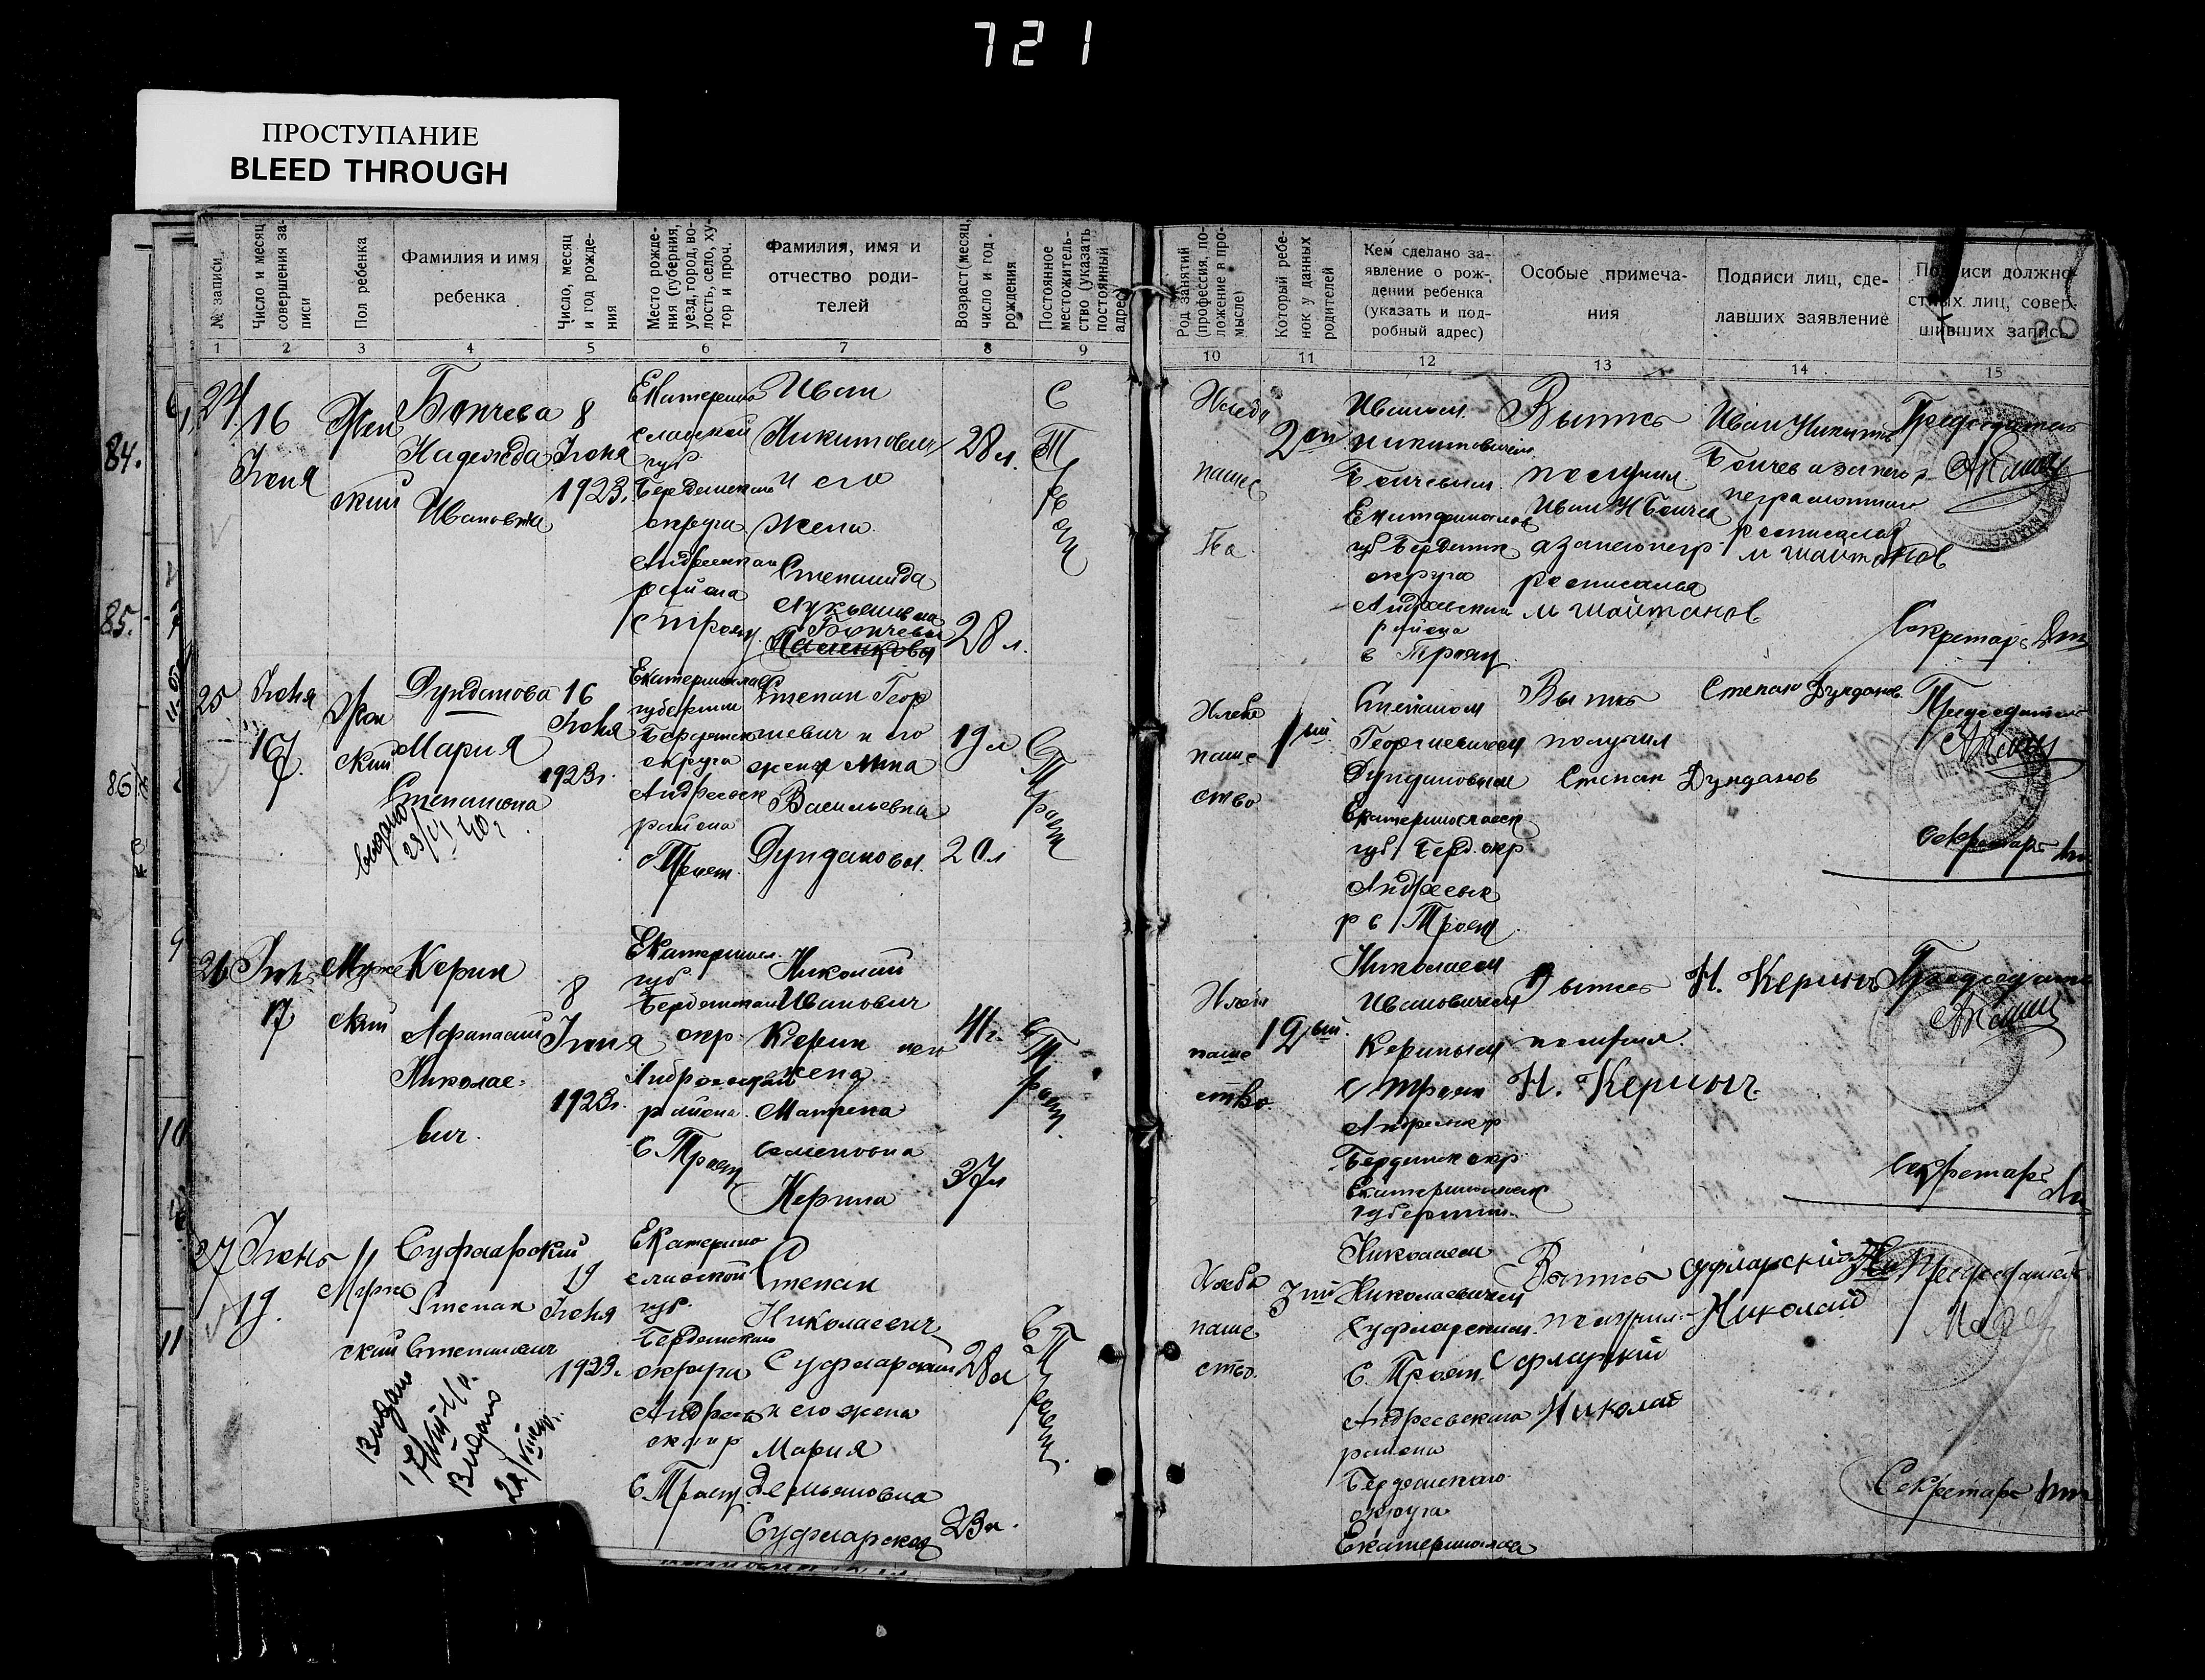 721
ПРОСТУПАНИЕ
BLEED THROUGH
№ записи
Число и месяц
совершения за-
писи
Пол ребенка
Фамилия и имя
ребенка
Число, месяц
и год рожде-
ния
Место рожде-
ния (губерния,
уезд, город, во-
лость, село, ху-
тор и проч.
Фамилия, имя и
отчество роди-
телей
Возраст (месяц,
число и год
рождения
Постоянное
местожитель-
ство (указать
постоянный
адрес)
1 2 3 4 5 6 7 8 9
24
16
Июня
Жен
ский
Бончева
Надежда
Ивановна
8
Июня
1923г.
Екатерино
славской
губ.
Бердянского
округа
Андреевском
района
с Трояны
Иван
Никитович
и его
жена
Степанида
Лукьяновна
Бончевы
28 л.
28 л.
С
Трояны
25
Июня
16
Жен
ский
Дунданова
Мария
Степановна
выдано
23/VI 40г
16
Июня
1923г.
Екатеринослав
губернии
Бердянск
округа
Андреевск
района
с Трояны
Степан Геор
гиевич и его
жена Анна
Васильевна
Дундановы.
19 л
20 л
С
Трояны
26
Июнь
17
Муж
ский
Керин
Афанасий
Николае-
вич.
8
Июня
1923г.
Екатеринос.
губ
Бердянском
окр
Андреевском
района
С. Трояны
Николай
Иванович
Керин
жена
Матрена
Семеновна
Керина
41г.
37л
С
Трояны
27
Июнь
19.
Мужс
ский
Суфларский
Степан
Степанович
Видано
Видано
19
Июня
1923г.
Екатерино
славской
губ.
Бердянского
округа
Андреев
ск р
С. Трояны
Степан
Николаевич
Суфларский
и его жена
Мария
Демьяновна
Суфларская
28л
23л.
С
Трояны
84.
85.
86
9
10
11
Род занятий
(профессия, по-
ложение в про-
мысле)
Который ребе-
нок у данных
родителей
Кем сделано за-
явление о рож-
дении ребенка
(указать и под-
робный адрес)
Особые примеча-
ния
Подписи лиц, сде-
лавших заявление
Подписи должно-
стных лиц, совер-
шивших запись
20
10 11 12 13 14 15
Хлебо
пашес
тва
2ой
Иваном
Никитовичем
Бончевым
Екатеринослав
губ Бердянск
округа
Андреевский
района
с Трояны
Выпись
получил
Иван Н Бончев
а за него негр
росписался
М Шойтанов
Иван Никитов
Бончев а за него
неграмотного
росписался
М Шойтанов
Председатель
Секретарь
Хлебо
паше
ство
1ый
Степаном
Георгиевичем
Дундановым
Екатеринославск
губ. Берд. окр
Андреевск
р с Трояны
Выпись
получил
Степан Дунданов
Степан Дунданов
Председатель
Секретарь
Хлебо
паше
ство
12ый
Николаем
Ивановичем
Кериным
с Трояны
Андреевск р
Бердянск окр
Екатеринославск
губернии
Выпись
получил
Н. Керинъ.
Н. Керинъ
Председатель
Секретарь
Хлебо
паше
ство.
3ий
Николаем
Николаевичем
Суфларским
С. Трояны
Андреевского
района
Бердянского
округа
Екатеринослав
Выпись
получил
Суфларский
Николай
Суфларский
Николай
Председатель
Секретарь